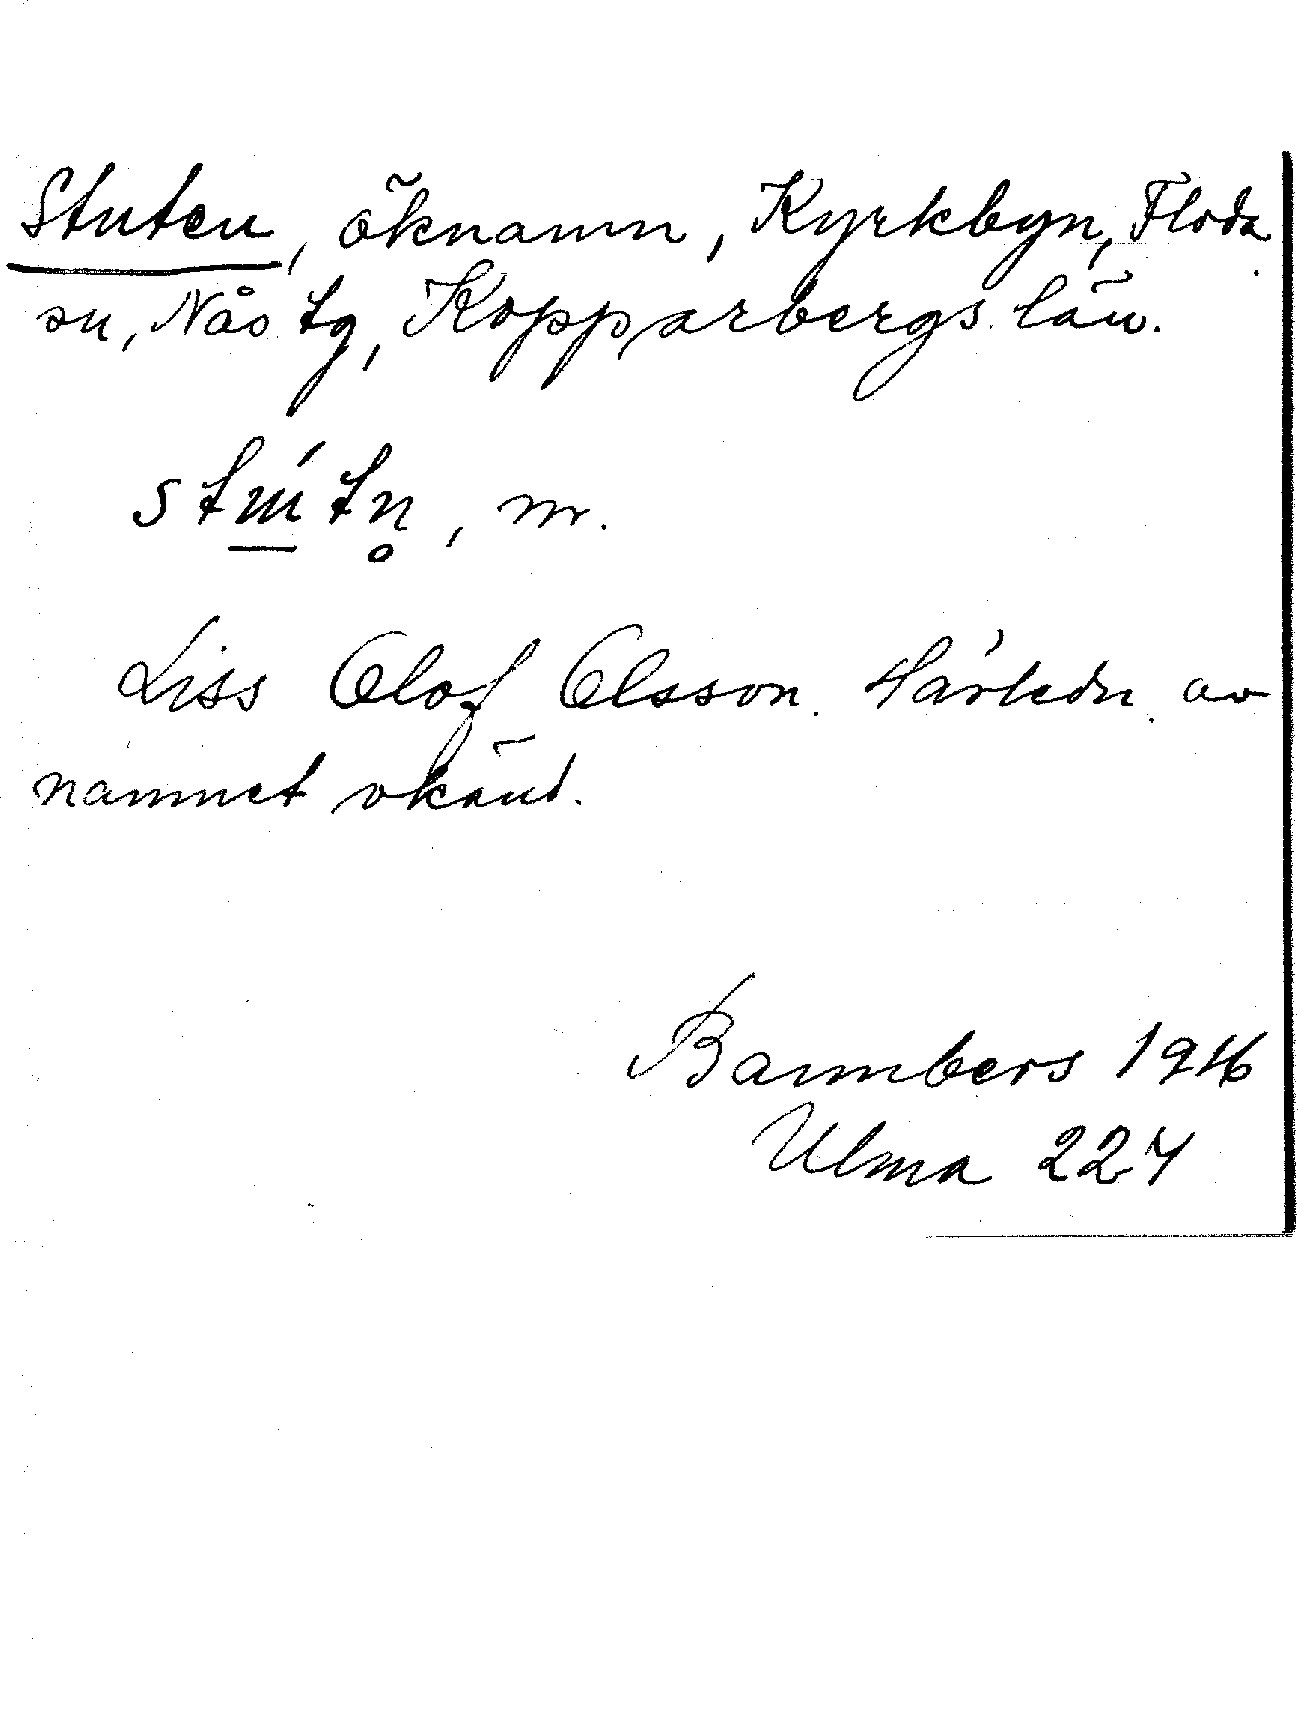 Stuten, öknamn, Kyrkbyn, Floda
sn, Nås tg, Kopparbergs län.
m.
Liss Olof Olsson. Härledn. av
namnet okänd.
1916
Ulma 227